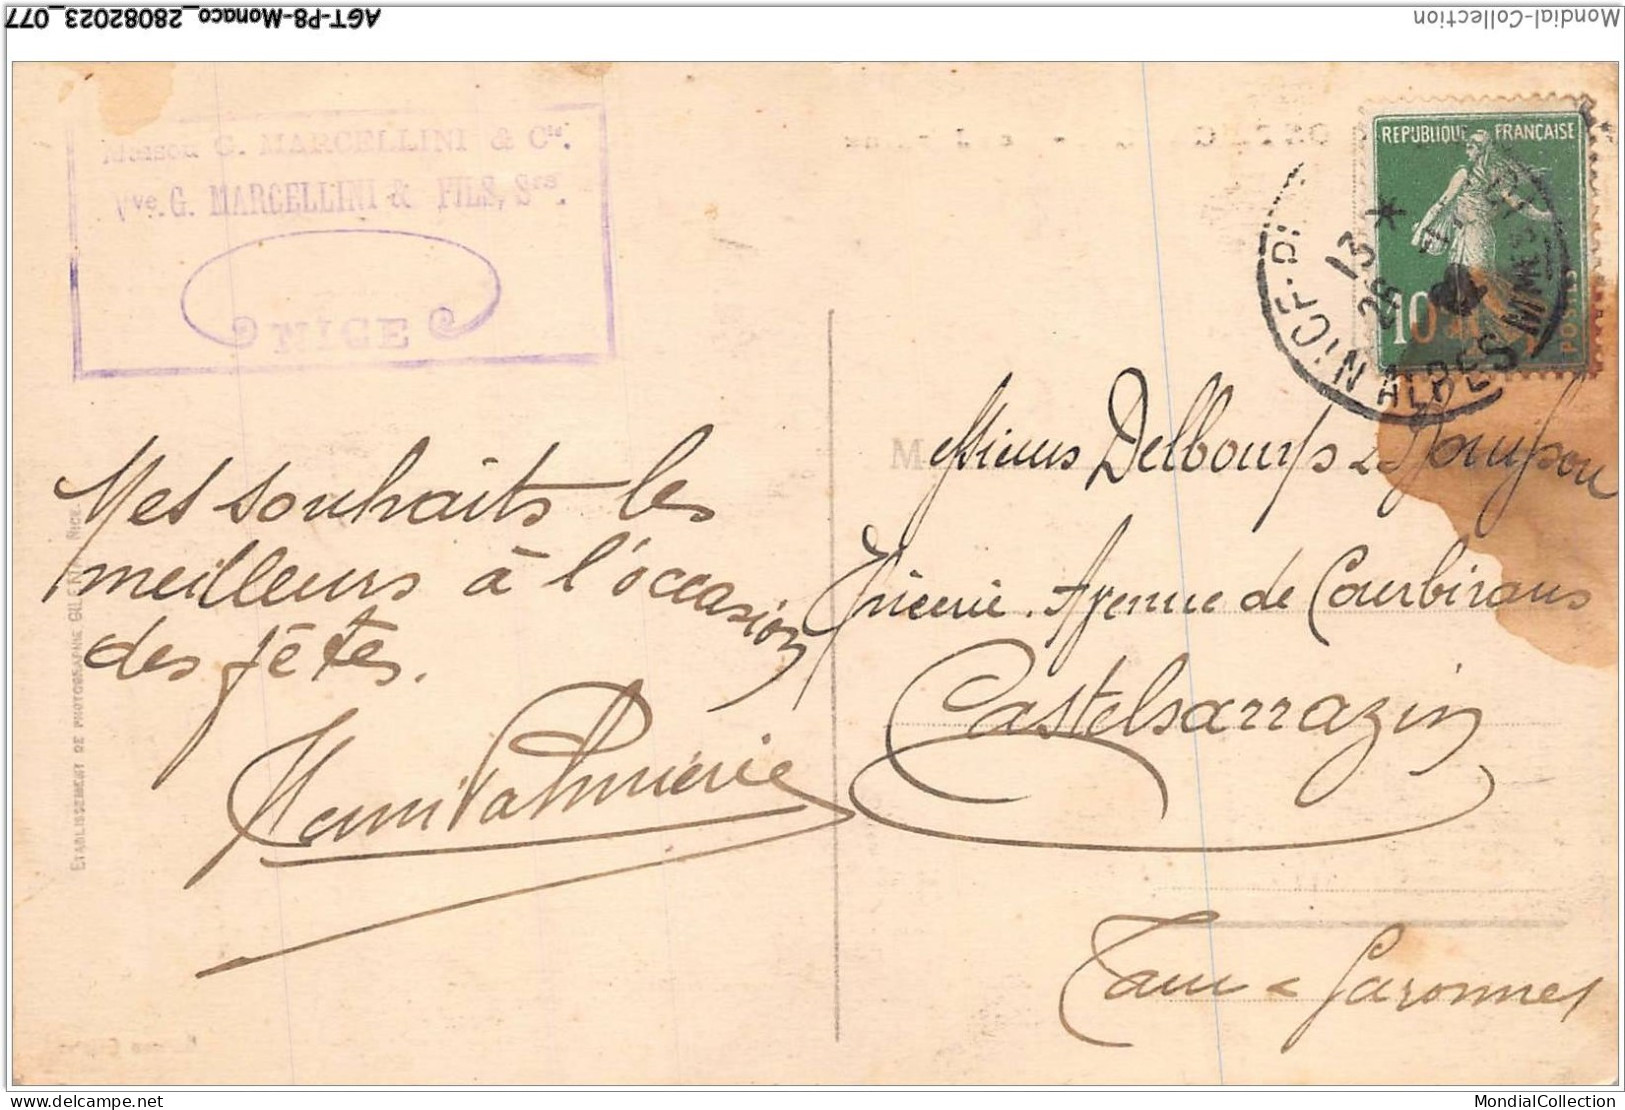 AGT-P8-Monaco_28082023_077
Mondial-Collection
Maison G. MARCELLINI & Cie.
Vve. G. MARCELLINI & FILS, Srs.
NICE
REPUBLIQUE FRANÇAISE
10
POSTES
NICE-P
ALPES MMES
13
26
Mes souhaits les
meilleurs à l'occasion
des fêtes.
M
Messieurs Delbourgs &
Épicerie. Avenue de Courbiraus
Castelsarrazin
Tarn & Garonne
ETABLISSEMENT DE PHOTOGRAPHIE GILETTA, NICE
delcampe.net
MondialCollection